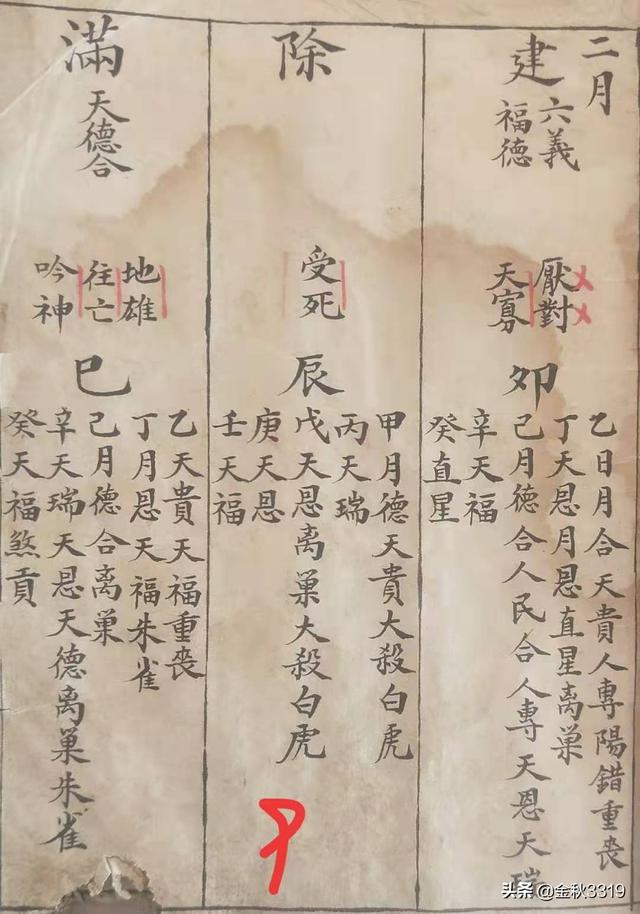 二月
建
六義
福德
厭對
天寡
卯
乙日月合天貴人專陽錯重丧
丁天恩月恩直星离巢
己月德合人民合人專天恩天瑞
辛天福
癸直星
除
受死
辰
甲月德天貴大殺白虎
丙天瑞
戊天恩离巢大殺白虎
庚天恩
壬天福
滿
天德合
地雄
往亡
吟神
巳
乙天貴天福重丧
丁月恩天福朱雀
己月德合离巢
辛天瑞天恩天德离巢朱雀
癸天福煞貢
头条 @金秋3319